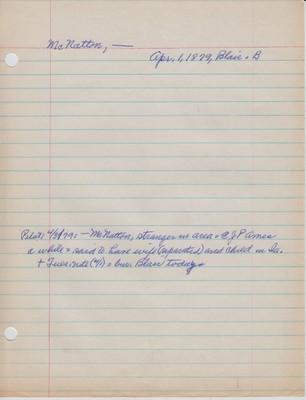 McNatton, —
Apr. 1, 1879, Blair. B
Pilot: 4/3/79: — McNatton, stranger in area + @ J P Ames
a while + said to have wife (separated) and child in Ia.
+ Tues. nite (4/1) + bur. Blair today.